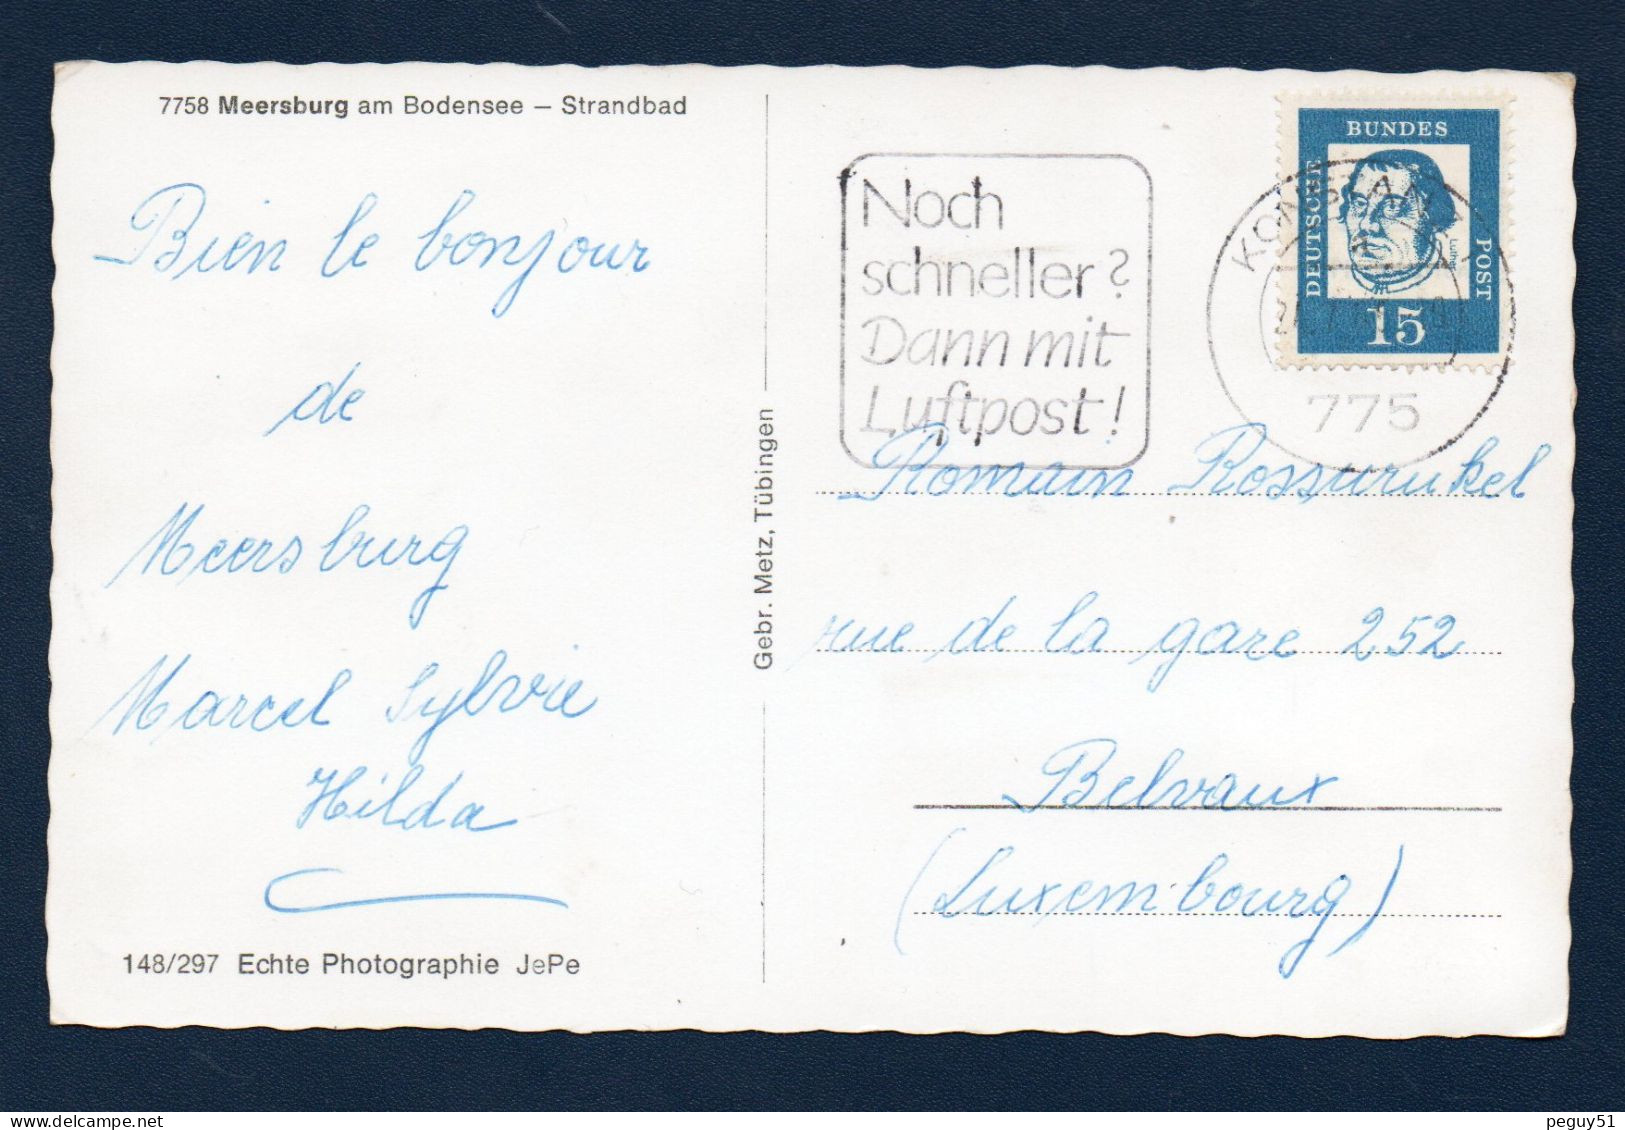 7758 Meersburg am Bodensee – Strandbad
Bien le bonjour
de
Meersburg
Marcel Sylvie
Hilda
148/297 Echte Photographie JePe
Gebr. Metz, Tübingen
Noch
schneller?
Dann mit
Luftpost!
KONSTANZ
775
DEUTSCHE
BUNDES
POST
Luther
15
Romain
rue de la gare 252
Belvaux
(Luxembourg)
peguy51